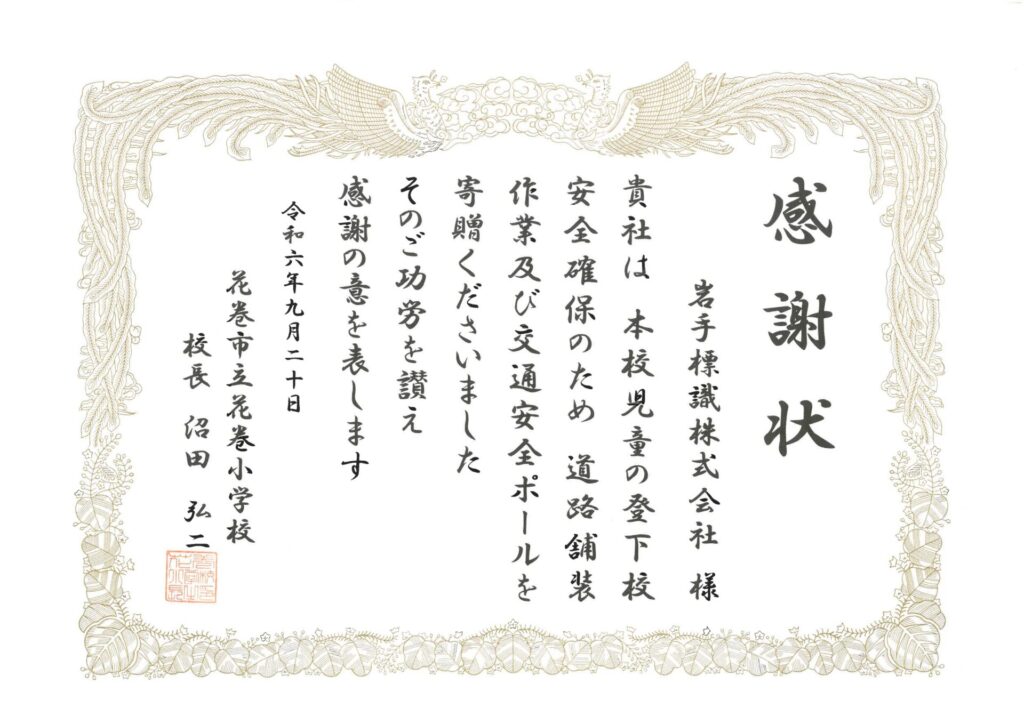 感謝状
岩手標識株式会社 様
貴社は 本校児童の登下校
安全確保のため 道路舗装
作業及び交通安全ポールを
寄贈くださいました
そのご功労を讃え
感謝の意を表します
令和六年九月二十日
花巻市立花巻小学校
校長 沼田 弘二